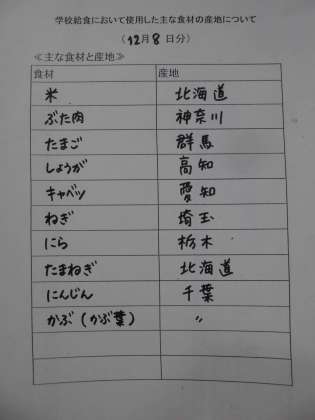 学校給食において使用した主な食材の産地について
(12月8日分)
≪主な食材と産地≫
食材 産地
米 北海道
ぶた肉 神奈川
たまご 群馬
しょうが 高知
キャベツ 愛知
ねぎ 埼玉
にら 栃木
たまねぎ 北海道
にんじん 千葉
かぶ(かぶ葉) 〃